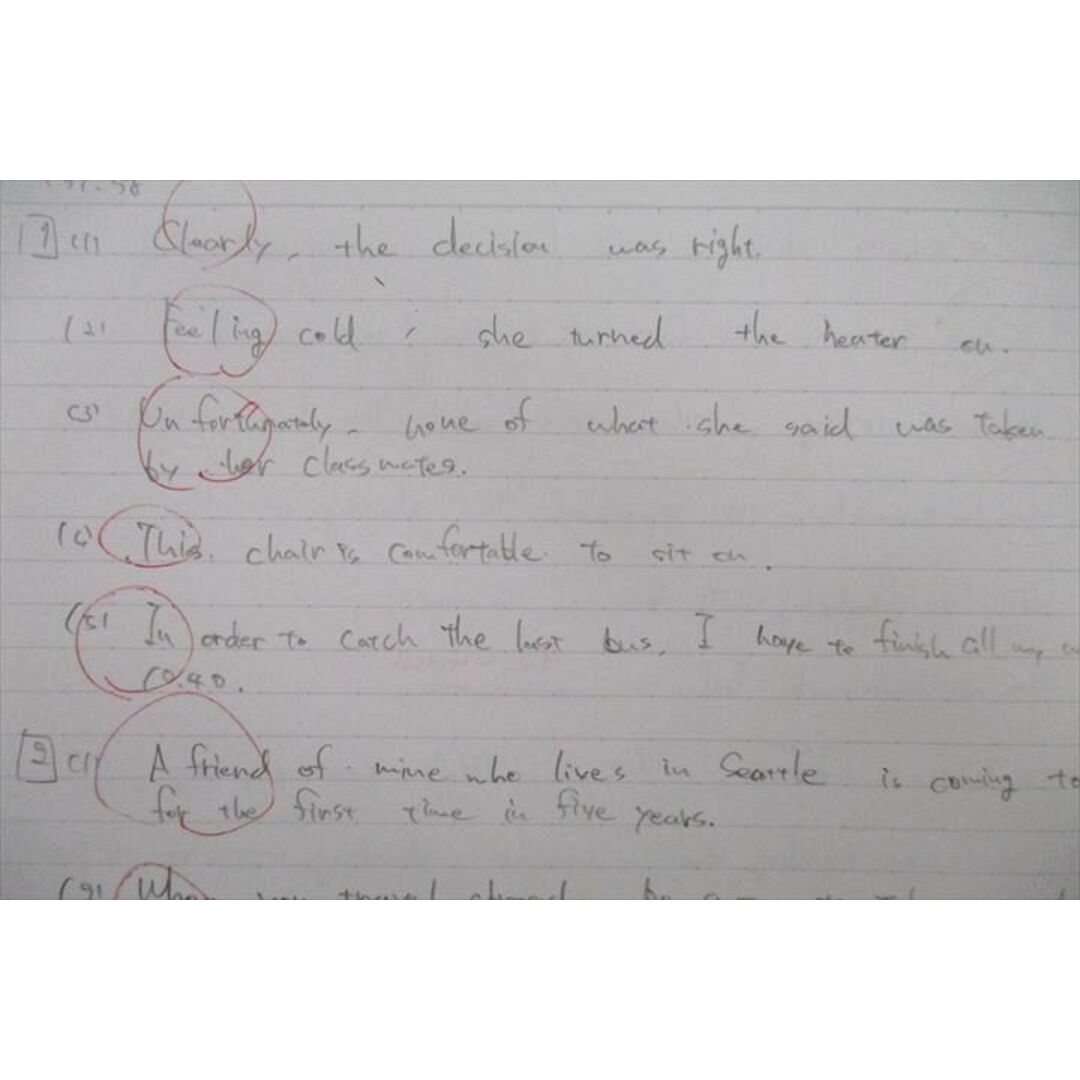 1 (1) Clearly, the decision was right.
(2) Feeling cold, she turned the heater on.
(3) Unfortunately, none of what she said was taken
by her classmates.
(4) This chair is comfortable to sit on.
(5) In order to catch the last bus, I have to finish all my
10:40.
2 (1) A friend of mine who lives in Seattle is coming to
for the first time in five years.
(2) When you travel abroad,